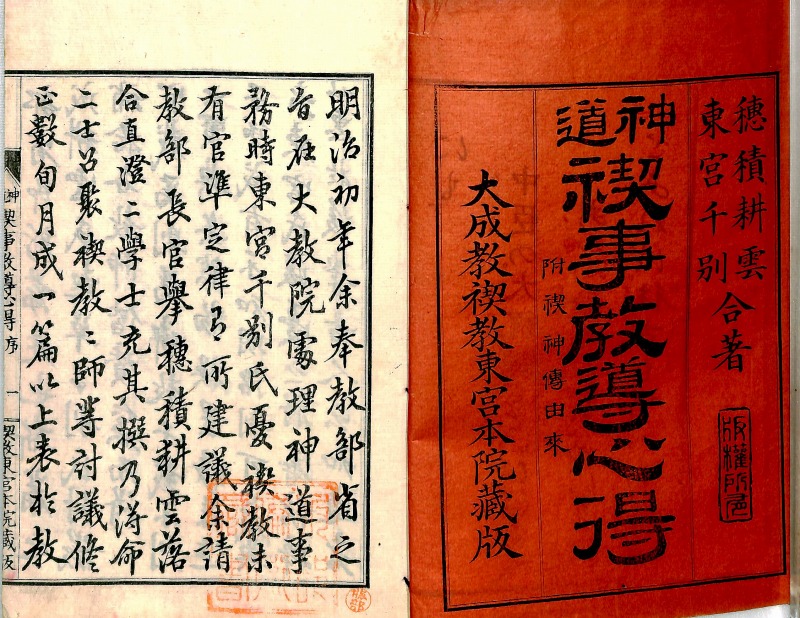 穗積耕雲
東宮千別
合著
版權所有
神道
禊事教導心得
附禊神傳由來
大成教禊教東宮本院藏版
明治初年余奉教部省之
旨在大教院處理神道事
務時東宮千別氏憂禊教未
有官準定律有所建議余請
教部長官擧穗積耕雲落
合直澄二學士充其撰乃得命
二士召聚禊教二師等討議修
正數旬月成一篇以上表於教
神道禊事教導心得序
一
禊教東宮本院藏版